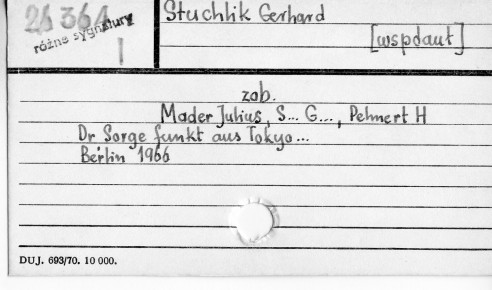 26364
różne sygnatury
I
Stuchlik Gerhard
[wspdaut]
zob.
Mader Julius, S... G..., Pehnert H
Dr Sorge funkt aus Tokyo...
Berlin 1966
DUJ. 693/70. 10 000.